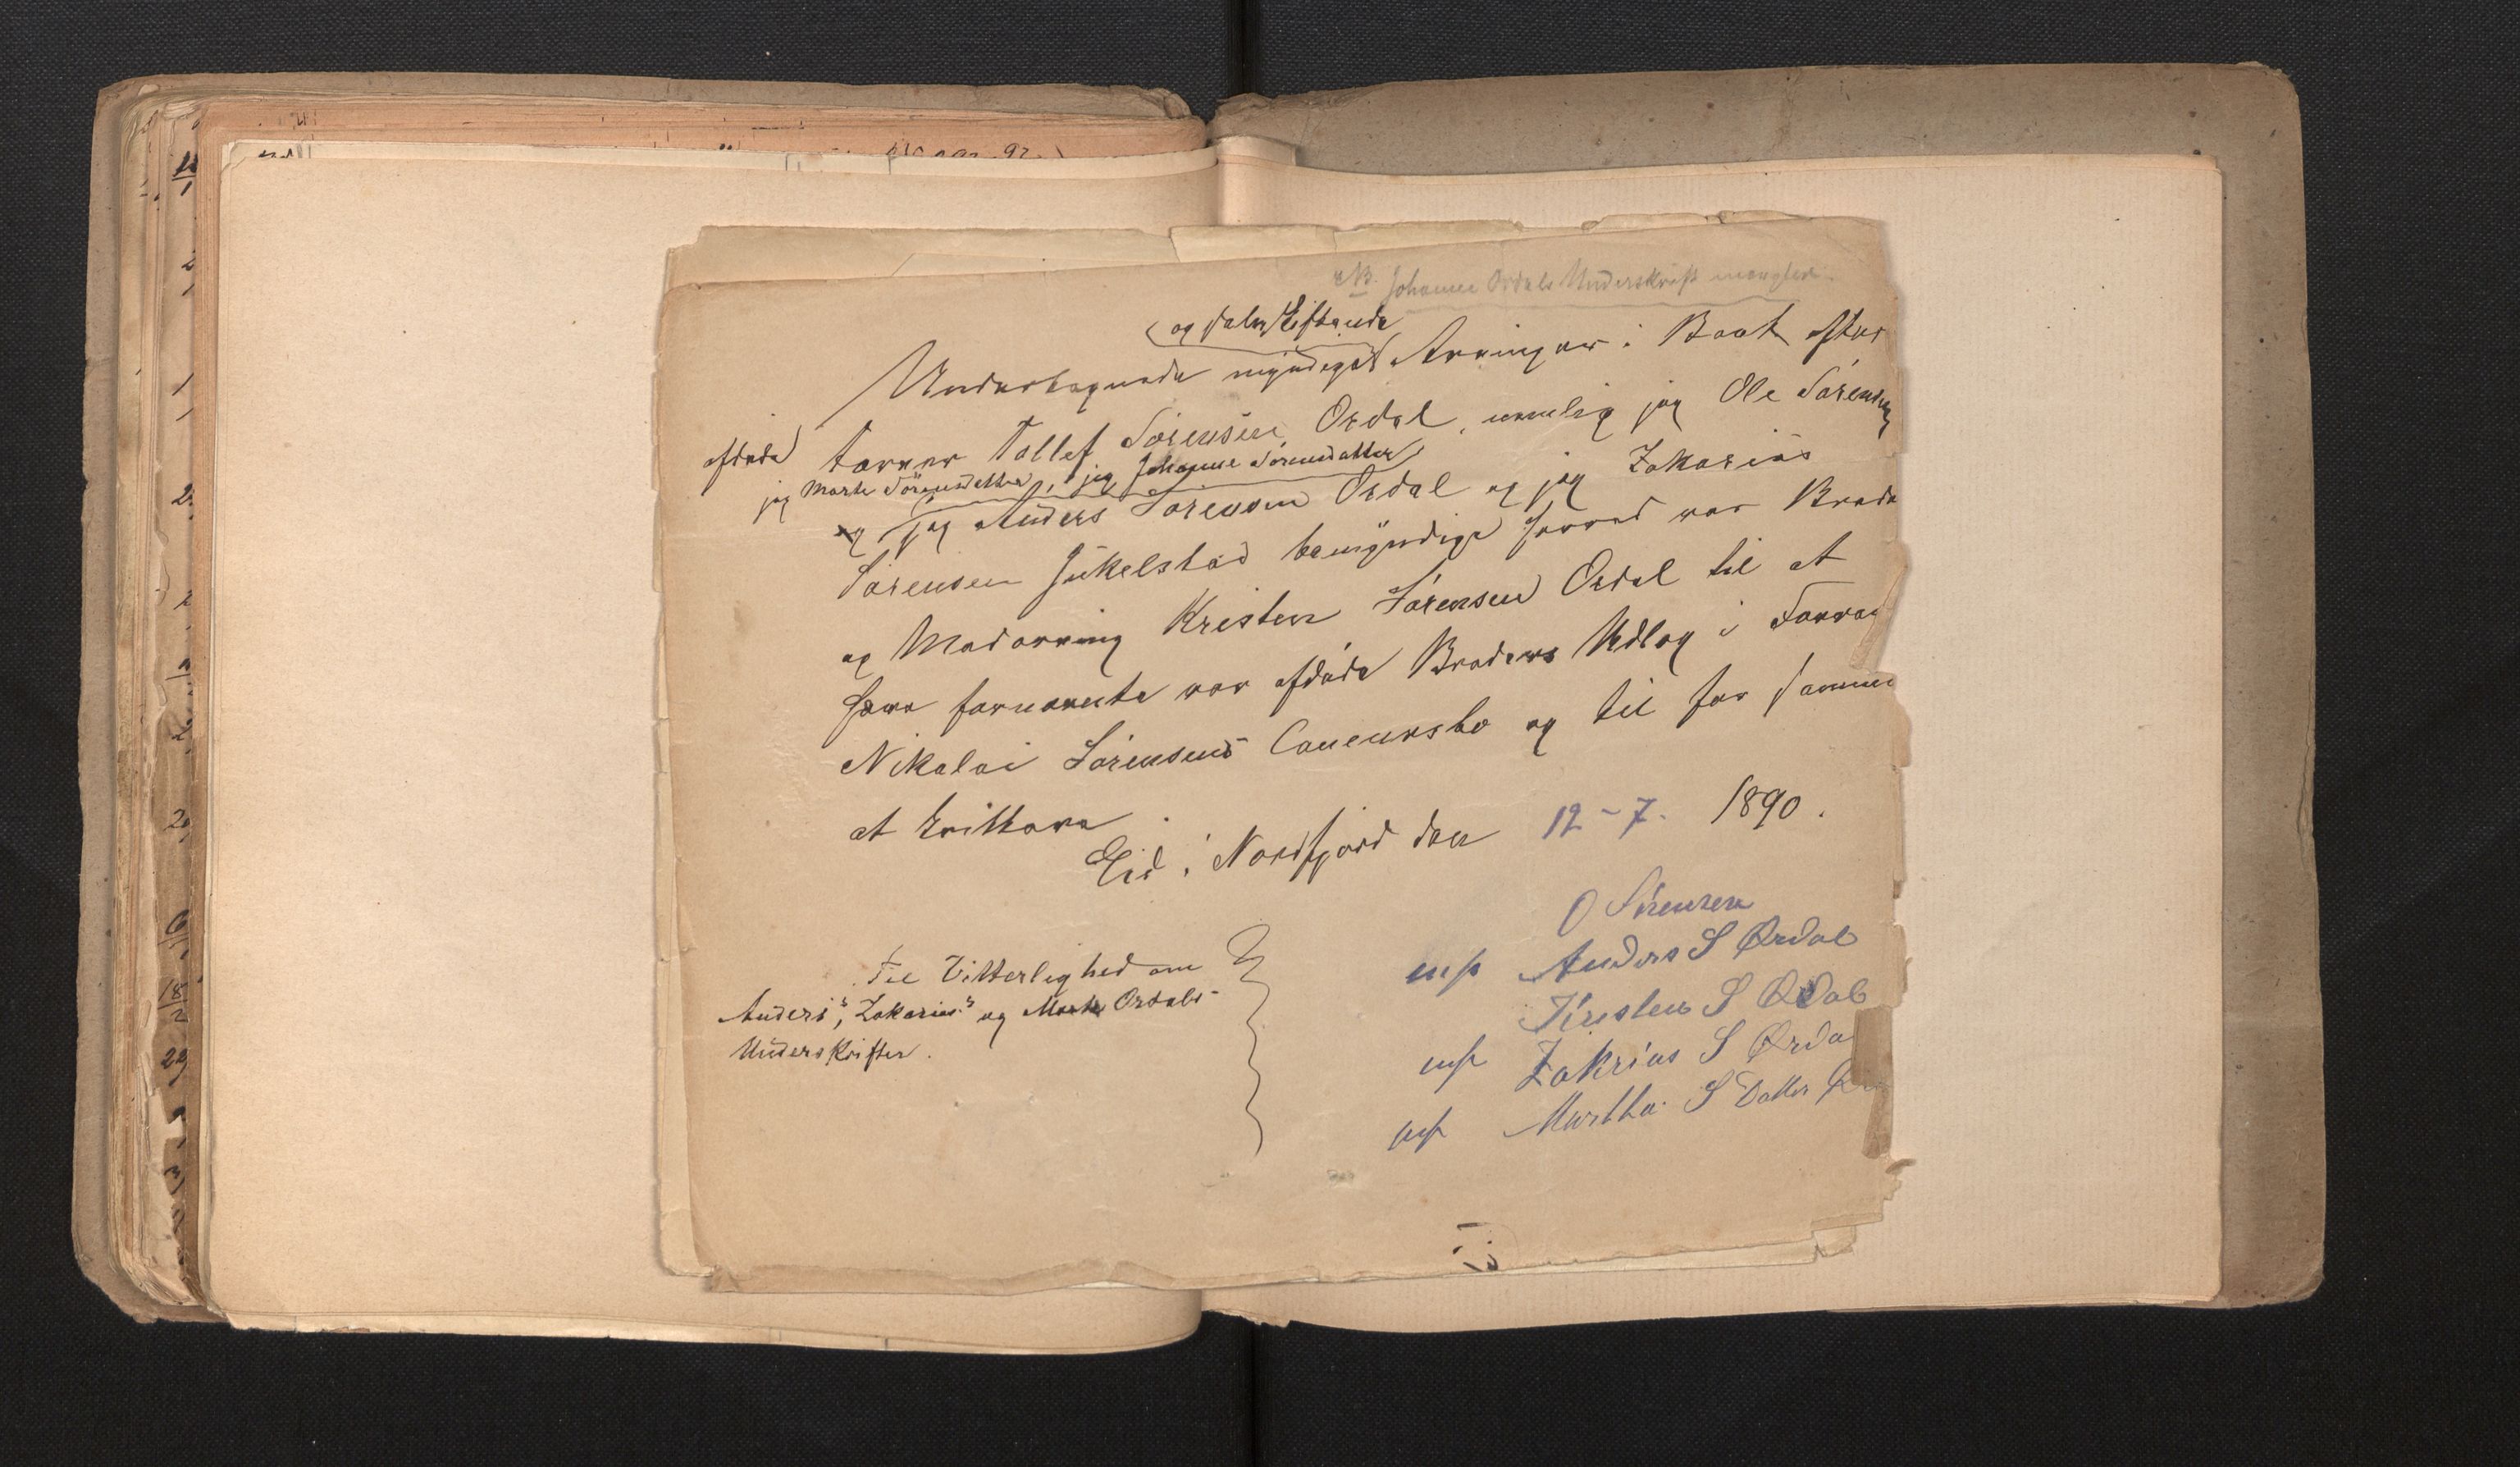 NB. Johanne Ordals Underskrift mangler.
og selvskiftende
Undertegnede myndige Arvinger i Boet efter
afdøde Tarner Tollef Sørensen Ordal, nemlig jeg Ole Sørensen
jeg Marte Sørensdatter, jeg Johanne Sørensdatter
og jeg Anders Sørensen Ordal og jeg Zakarias
Sørensen Hjikelstad bemyndige herved vor Broder
og Medarving Kristen Sørensen Ordal til at
hæve fornævnte vor afdøde Broders Udlæg i Farver
Nikolai Sørensens Concursbo og til for samme
at kvittere.
Eid i Nordfjord den 12-7. 1890.
O Sørensen
mp Anders S Ørdal
Kirsten S Ørdal
mp Zakrias S Ørdal
mp Martha S Datter
Til Vitterlighed om
Anders's, Zakarias's og Marte Ordals
Underskrifter.